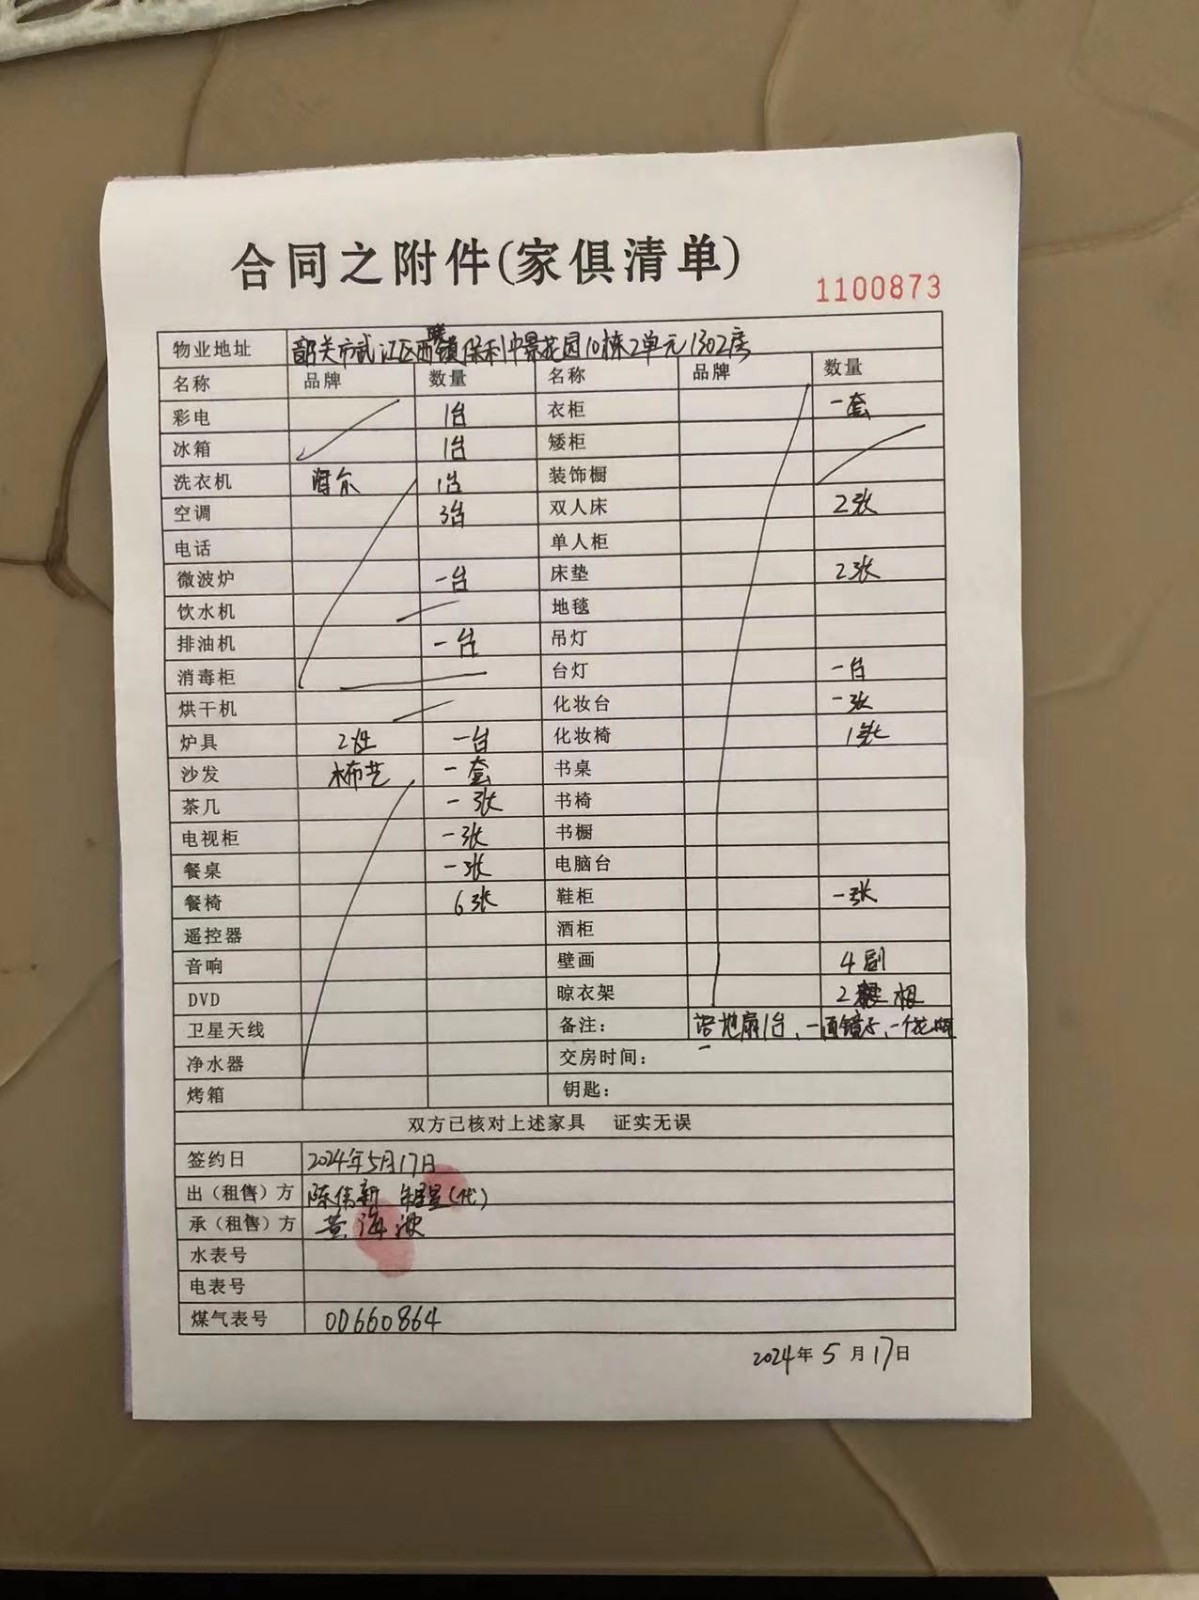 合同之附件(家俱清单)
1100873
物业地址 韶关市武江区西联镇保利中景花园10栋2单元1302房
名称 品牌 数量 名称 品牌 数量
彩电 1台 衣柜 一套
冰箱 1台 矮柜
洗衣机 海尔 1台 装饰橱
空调 3台 双人床 2张
电话 单人柜
微波炉 一台 床垫 2张
饮水机 地毯
排油机 一台 吊灯
消毒柜 台灯 一台
烘干机 化妆台 一张
炉具 一台 化妆椅 1张
沙发 木布艺 一套 书桌
茶几 一张 书椅
电视柜 一张 书橱
餐桌 一张 电脑台
餐椅 6张 鞋柜 一张
遥控器 酒柜
音响 壁画 4副
DVD 晾衣架 2根
卫星天线 备注: 落地扇1台、一面镜子、一个花瓶
净水器 交房时间:
烤箱 钥匙:
双方已核对上述家具 证实无误
签约日 2024年5月17日
出(租售)方 陈伟新 (代)
承(租售)方 黄海波
水表号
电表号
煤气表号 00660864
2024年5月17日